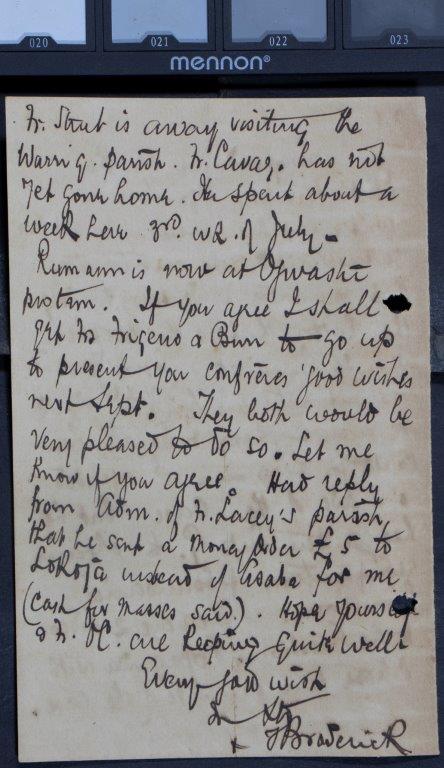 020 021 022 023
mennon®
Fr. Strub is away visiting the
Warri q. parish. Fr. Cavag. has not
yet gone home. He spent about a
week here 3rd. wk. of July -
Rumann is now at Ogwashi
protem. If you agree I shall
get Frs Frigerio & Burr to go up
to present you confrères' good wishes
next Sept. They both would be
very pleased to do so. Let me
know if you agree. Had reply
from Adm. of Fr. Lacey's parish,
that he sent a money order £5 to
Lokoja instead of Asaba for me
(Cash for Masses said.). Hope yourself
& Fr. OC. are keeping quite well
Every good wish
In Xto
+ TBroderick